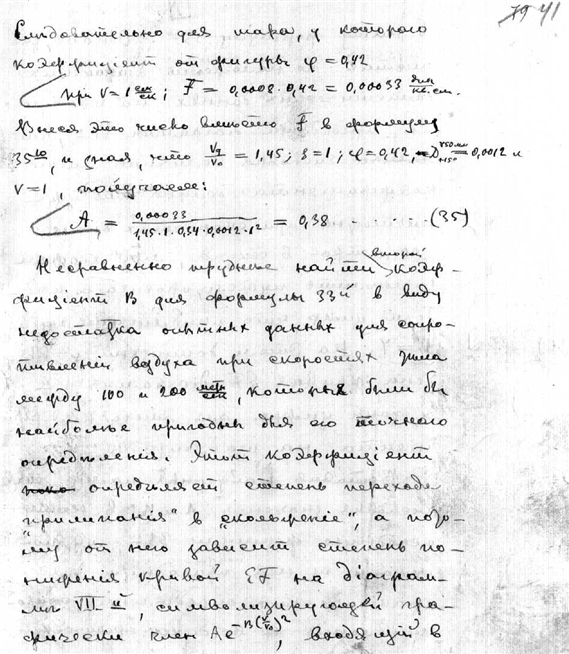 41
Слѣдовательно для шара, у котораго
коэффиціент от фигуры φ = 0,42
при V = 1 см/сек; F = 0,0008 · 0,42 = 0,00033 дин/кв.см.
Внеся это число вмѣсто f в формулу
35ю, и зная, что V₉/V₀ = 1,45; s = 1; φ = 0,42, = 0,0012 и
V = 1, получаем:
A = 0,00033 / 1,45 · 1 · 0,34 · 0,0012 · 1² = 0,38 · · · · · · (35)
Несравненно труднѣе найти второй коэф-
фиціент В для формулы 33й в виду
недостатка опытных данных для сопро-
тивленія воздуха при скоростях
между 100 и 200 метр/сек, которыя были бы
наиболѣе пригодны для его точнаго
опредѣленія. Этот коэффиціент
опредѣляет степень перехода
„прилипанія" в „скольженіе", а пото-
му от него зависит степень по-
ниженія кривой EF на діаграм-
мѣ VII й, символизирующей гра-
фически член Ae^-B(v/v₀)², входящій в